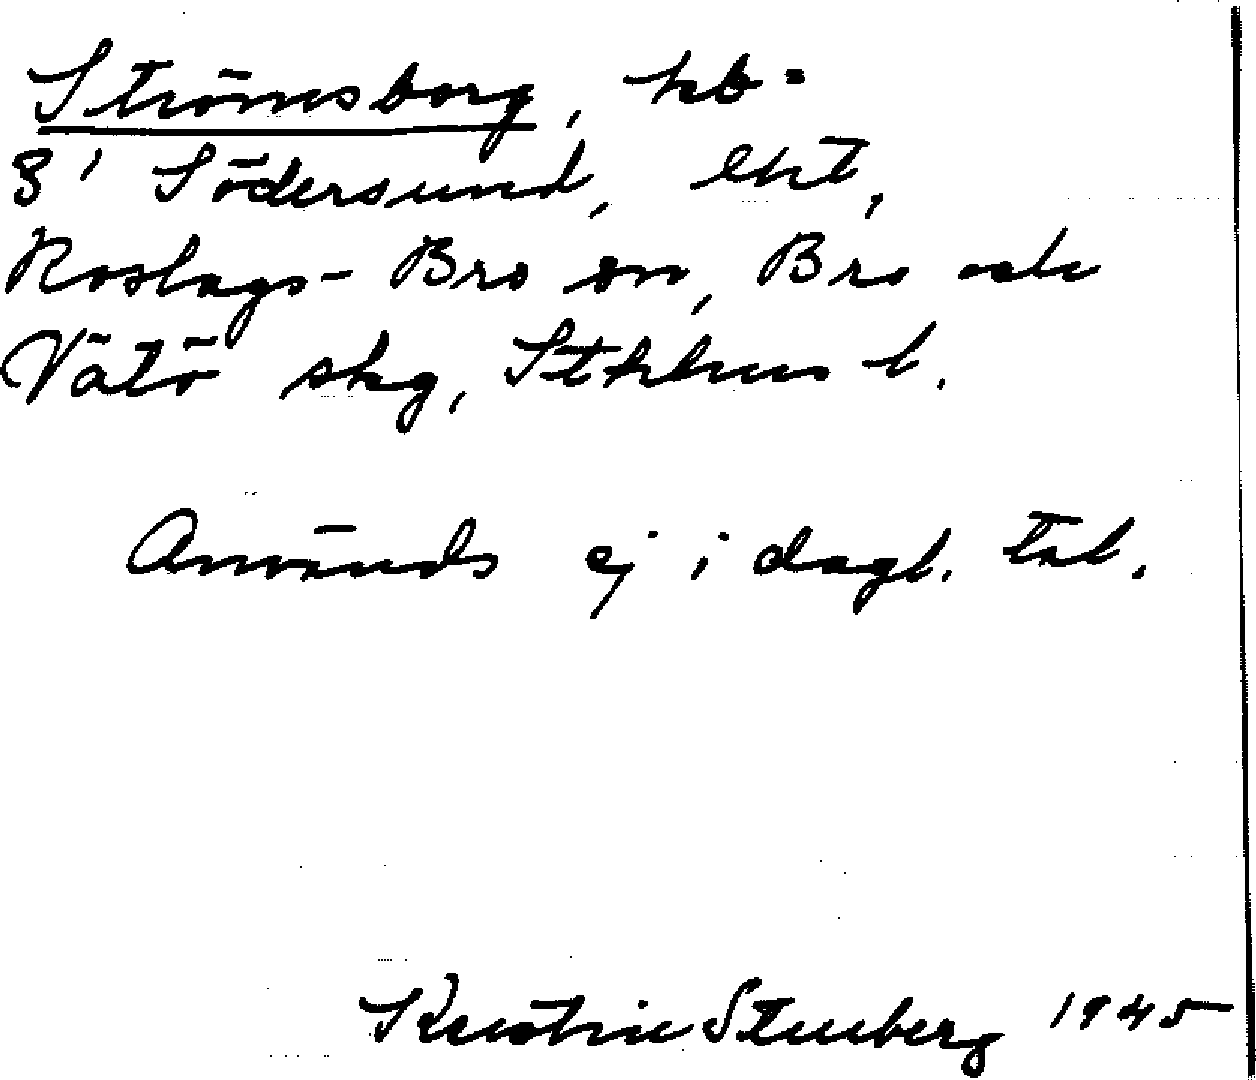 Strömsborg, hb =
8' Södersund, eht,
Roslags-Bro sn, Bro och
Vätö skg, Sthlms l.
Används ej i dagl. tal.
Kerstin Stenberg 1945